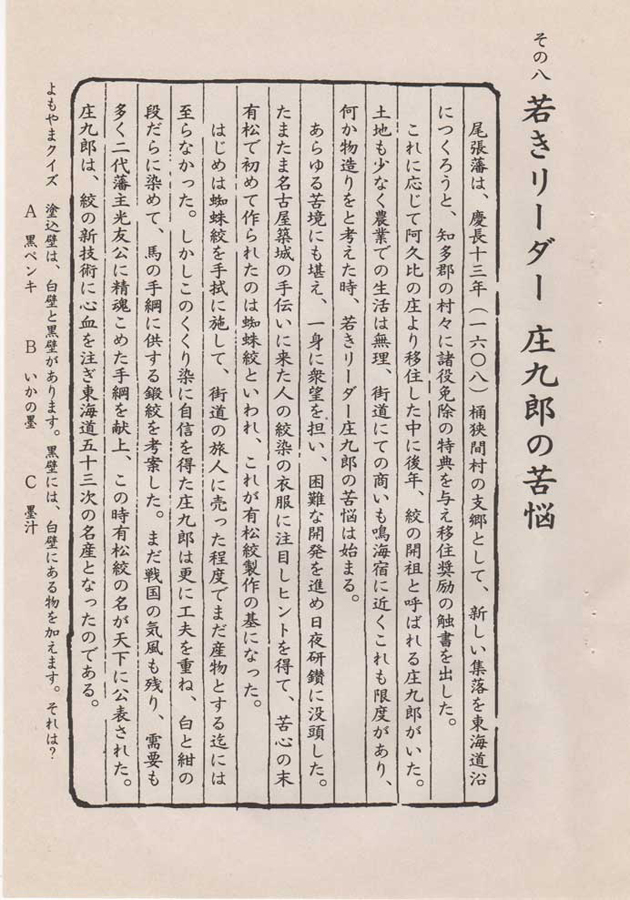 その八 若きリーダー 庄九郎の苦悩
尾張藩は、慶長十三年（一六〇八）桶狭間村の支郷として、新しい集落を東海道沿
につくろうと、知多郡の村々に諸役免除の特典を与え移住奨励の触書を出した。
これに応じて阿久比の庄より移住した中に後年、絞の開祖と呼ばれる庄九郎がいた。
土地も少なく農業での生活は無理、街道にての商いも鳴海宿に近くこれも限度があり、
何か物造りをと考えた時、若きリーダー庄九郎の苦悩は始まる。
あらゆる苦境にも堪え、一身に衆望を担い、困難な開発を進め日夜研鑽に没頭した。
たまたま名古屋築城の手伝いに来た人の絞染の衣服に注目しヒントを得て、苦心の末
有松で初めて作られたのは蜘蛛絞といわれ、これが有松絞製作の基になった。
はじめは蜘蛛絞を手拭に施して、街道の旅人に売った程度でまだ産物とする迄には
至らなかった。しかしこのくくり染に自信を得た庄九郎は更に工夫を重ね、白と紺の
段だらに染めて、馬の手綱に供する鍛絞を考案した。まだ戦国の気風も残り、需要も
多く二代藩主光友公に精魂こめた手綱を献上、この時有松絞の名が天下に公表された。
庄九郎は、絞の新技術に心血を注ぎ東海道五十三次の名産となったのである。
よもやまクイズ 塗込壁は、白壁と黒壁があります。黒壁には、白壁にある物を加えます。それは？
A 黒ペンキ B いかの墨 C 墨汁